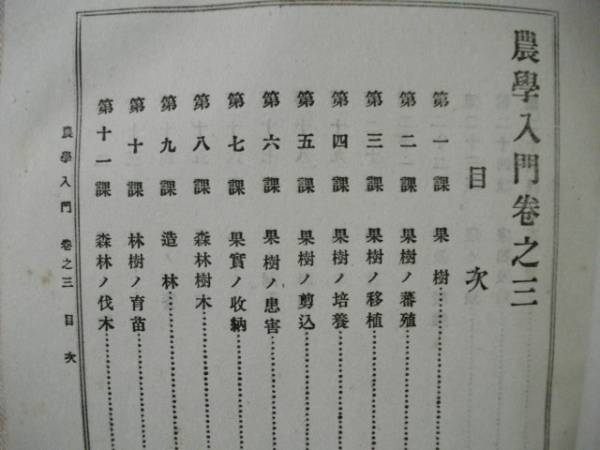 農學入門卷之三
目次
第一課 果樹
第二課 果樹ノ蕃殖
第三課 果樹ノ移植
第四課 果樹ノ培養
第五課 果樹ノ剪込
第六課 果樹ノ患害
第七課 果實ノ收納
第八課 森林樹木
第九課 造林
第十課 林樹ノ育苗
第十一課 森林ノ伐木
農學入門 卷之三 目次